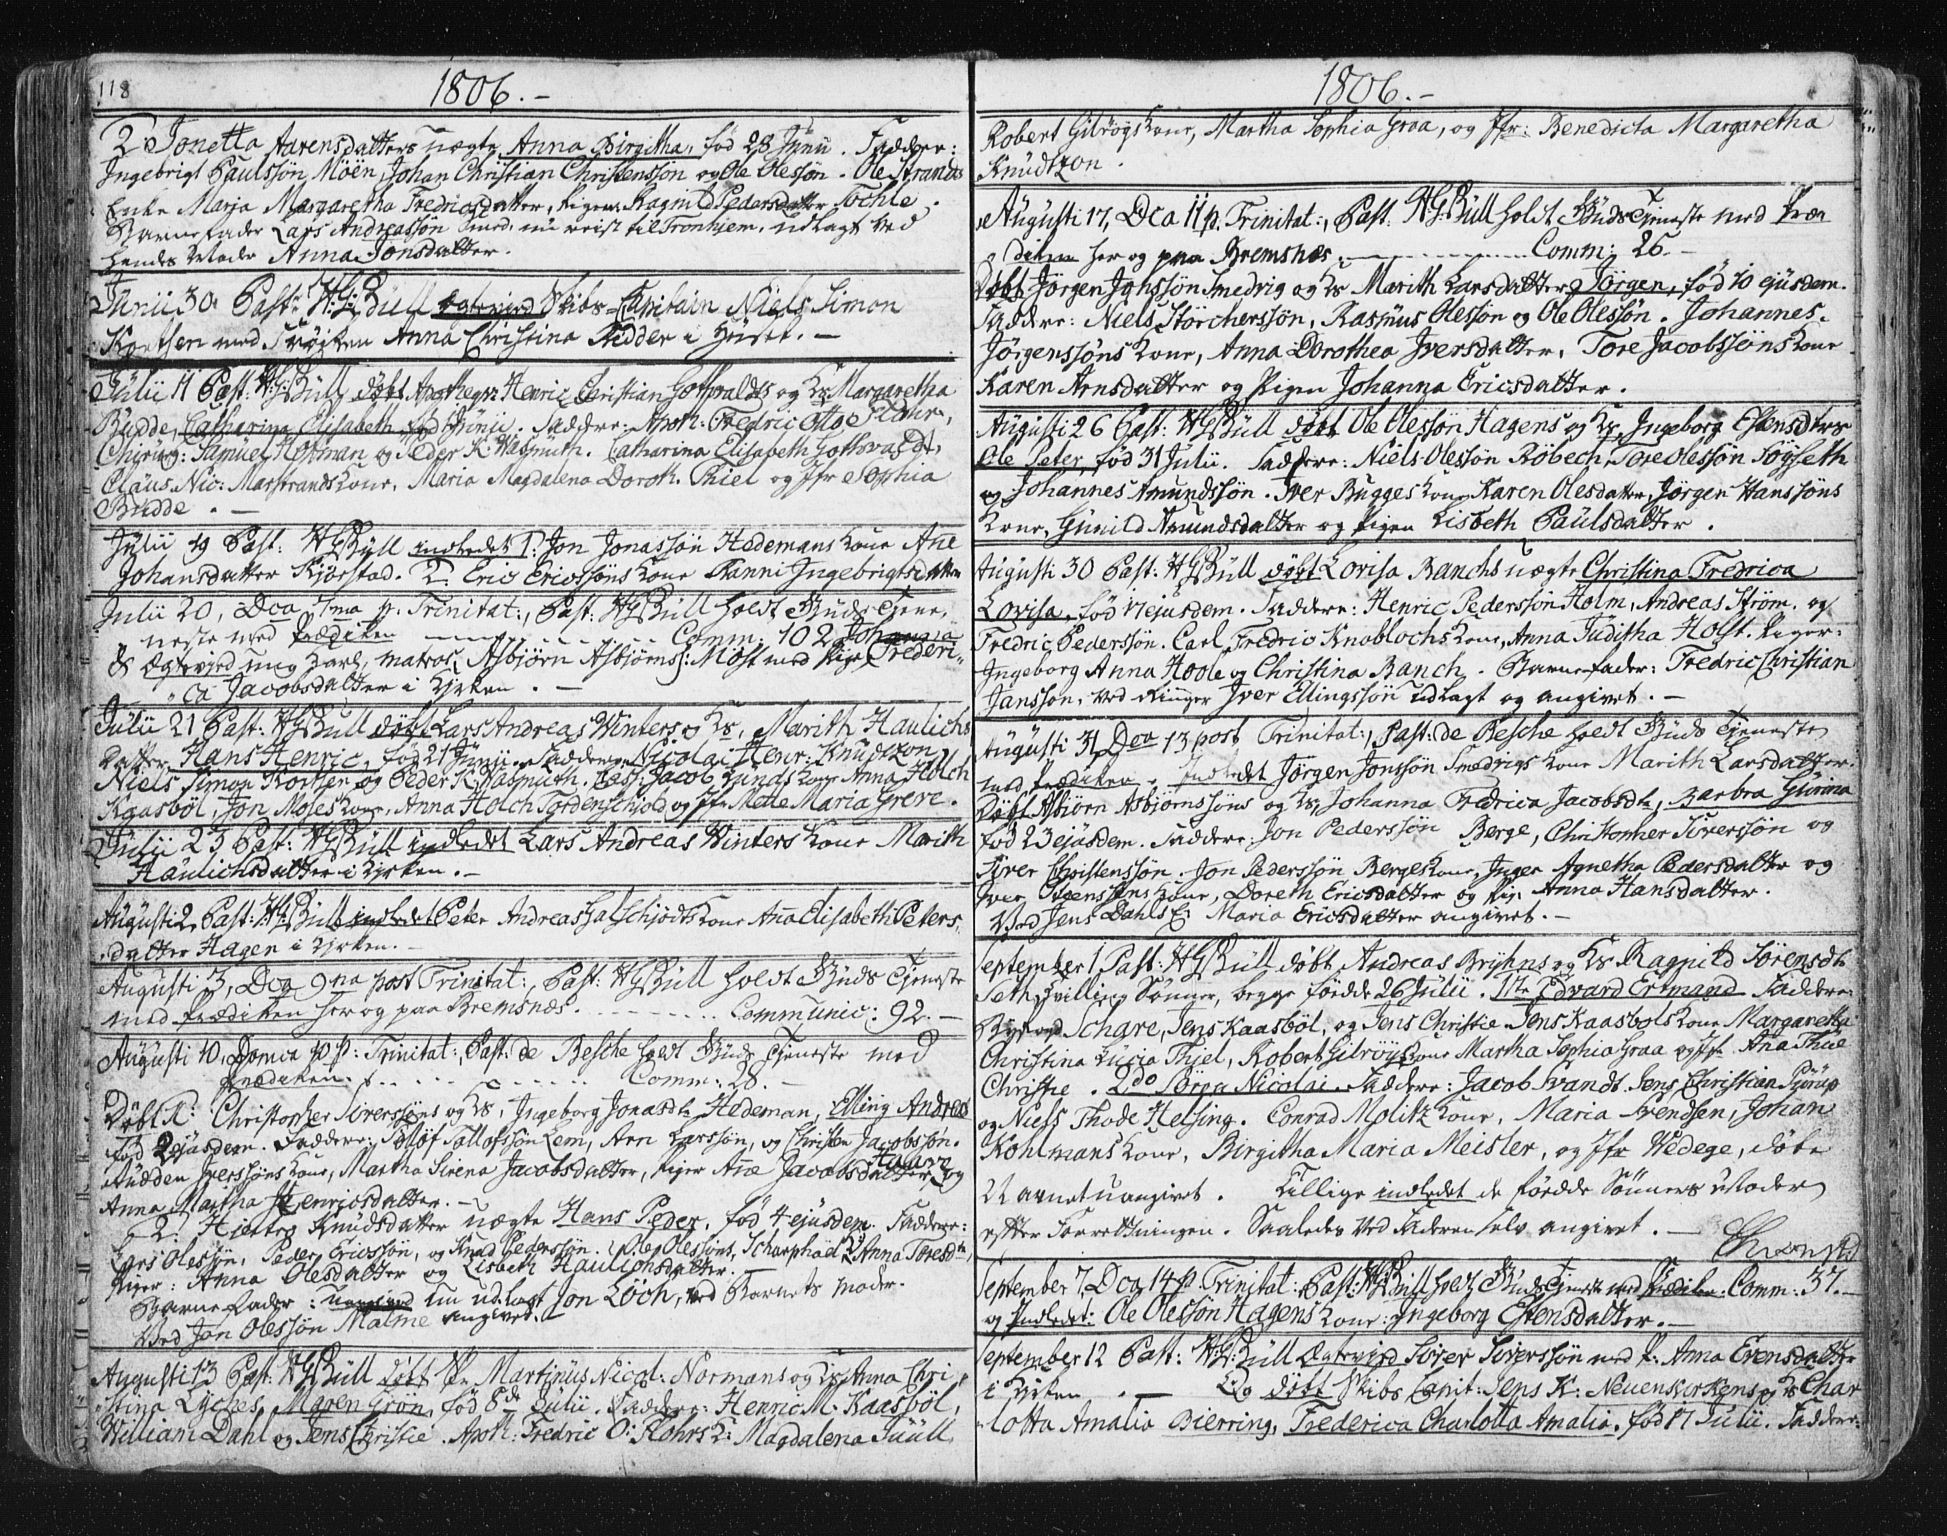 118
1806.-
2. Jonetta Aarensdatters uægte Anna Birgitha, fød 28 Junii. Faddere:
Ingebrigt Paulssøn Möen, Johan Christian Christenssøn og Ole Olessøn. Ole Strands
Enke Maria Margaretha Fredricsdatter, Pigen Ragnild Pedersdatter Tochle.
Barnefader Lars Andreassøn Smed, nu reist til Tronhiem, udlagt ved
hendes Moder Anna Jonsdatter.
Junii 30. Past: H:G:Büll Egteviede Skibs-Capitain Niels Simon
Korthsen med Frøiken Anna Christina Ridder i Huset. -
Julii 11 Past: HGBüll døbt Apotheqr: Henric Christian Gottwaldts og Ks Margaretha
Budde, Catharina Elisabeth, fød Junii. Faddere: Apoth: Fredric Otto Flohr,
Chirurg: Samuel Hofman og Peder K. Wasmuth. Catharina Elisabeth Gottwaldt,
Claus Nic: Marstrands Kone, Maria Magdalena Doroth. Thiel og Jfr Sophia
Budde. -
Julii 19 Past: HGBüll indledet 1. Jon Jonassøn Hedemans Kone Ane
Johansdatter Kjørstad. 2. Eric Ericssøns Kone Fanni Ingebrigtsdatter
Julii 20, Dca 7ma p. Trinitat:, Past: HGBüll holdt Guds Tjene-
neste med Prædiken Comm: 102
& Egteviede ung Karl, matros Asbjørn Asbjørns: Møst med Pige Johanna Frederi-
ca Jacobsdatter i Kirken. -
Julii 21 Past: HGBüll døbt Lars Andreas Winters og Ks, Marith Haulichs
Datter, Hans Henric, fød 21 Junii. Faddere Nicolai Henr: Knudtzon
Niels Simon Korthsen og Peder K. Wasmuth. Jacob Lunds Kone Anna Holch
Kaasbøl, Jon Moses Kone, Anna Holch Tordenschiold og Jfr Mette Maria Greve.
Julii 23 Past: HGBüll indledet Lars Andreas Winters Kone Marith
Haulichsdatter i Kirken. -
Augusti 2, Past: HGBüll indledet Peter Andreas Halschjødts Kone Ana Elisabeth Peters-
datter Hagen i Kirken. -
Augusti 3, Dca 9na post Trinitat:, Past: HGBüll holdt Guds Tjeneste
med Prædiken her og paa Bremsnæs. Communic: 92. -
Augusti 10, Domca 10 p: Trinitat:, Past: de Besche holdt Guds Tjeneste med
Prædiken. Comm: 28. -
Døbt 1: Christopher Siverssøns og Ks, Ingeborg Jonasdtr Hedeman, Elling Andreas
fød 2 ejusdem. Faddere: Tolløf Tolløfssøn Lem, Aren Larssøn, og Christen Jacobssøn.
Audden Iverssøns Kone, Martha Sirena Jacobsdatter, Piger Ane Jacobsdatter Hagave og
Anna Martha Henricsdatter. -
2. Knudsdatter uægte Hans Peder, fød 4 ejusdem. Faddere:
Lars Olessøn, Peder Ericssøn, og Knud Pederssøn. Ole Olessøns, Scharphael Anna Toresdtr,
Piger: Anna Olesdatter og Lisbeth Haulichsdatter. -
Barnefader: udlagt Jon Löch, ved Barnets Moder.
Ved Jon Olessøn Malme angivet.
Augusti 13 Past: HGBüll døbt Martinus Nicol: Normans og Ks Anna Chri-
stina Lyches, Maren Grøn, fød 8de Julii. Faddere: Henric M. Kaasbøl,
William Dahl og Jens Christie. Apoth: Fredric O: Flohrs K: Magdalena Juüll
1806.-
Robert Gilroys Kone, Martha Sophia Graa, og Jfr: Benedicta Margaretha
Knudtzon.
Augusti 17, Dca 11 p. Trinitat:, Past. HGBüll holdt Guds Tjeneste med Præ-
diken her og paa Bremsnæs. Comm: 26. -
Døbt Jørgen Jonssøn Smedvig og Ks Marith Larsdatter, Jørgen, fød 10 ejusdem.
Faddere: Niels Storcherssøn, Rasmus Olessøn og Ole Olessøn. Johannes
Jørgenssøns Kone, Anna Dorothea Iversdatter, Tore Jacobssøns Kone
Karen Arnsdatter og Pigen Johanna Ericsdatter.
Augusti 26 Past: HGBüll døbt Ole Olessøn Hagens og Ks, Ingeborg Estensdtrs
Ole Peter, fød 31 Julii. Faddere: Niels Olessøn Röbech, Tore Olessøn Søyseth
og Johannes Amundssøn. Iver Bugges Kone Karen Olesdatter, Jørgen Hanssøns
Kone, Gunild Amundsdatter og Pigen Lisbeth Paulsdatter.
Augusti 30 Past: HGBüll døbt Lovisa Ranchs uægte Christina Fredrica
Lovisa, fød 17 ejusdem. Faddere: Henric Pederssøn Holm, Andreas Strøm, og
Fredric Pederssøn. Carl Fredric Knoblochs Kone, Anna Juditha Holst. Piger:
Ingeborg Anna Hoole og Christina Ranch. Barnefader: Fredric Christian
Janssøn, ved Ringer Iver Ellingssøn udlagt og angivet. -
Augusti 31 Dca 13 post Trinitat:, Past: de Besche holdt Guds Tjeneste
med Prædiken. Indledet Jørgen Jonssøn Smedvigs Kone Marith Larsdatter.
Døbt Asbiørn Asbiørnssøns og Ks, Johanna Fredrica Jacobsdtr, Barbra Gurina
fød 23 ejusdem. Faddere: Jon Pederssøn Berge, Christopher Siverssøn og
Iver Christenssøn. Jon Pederssøn Berges Kone, Inger Agnetha Pedersdatter og
Iver Steenssøns Kone, Doreth Ericsdatter og Pig: Anna Hansdatter.
Ved Jens Dahls E: Maria Ericsdatter angivet. -
September 1 Past: HGBüll døbt Andreas Bryhns og Ks Ragnild Sörensdtr
Seths Tvilling Sønner, begge fødde 26 Julii. 1ste Edvard Ertmand Faddere:
Schare, Jens Kaasbøl, og Jens Christie. Jens Kaasbøls Kone Margaretha
Christina Lucia Thiel, Robert Gilroys Kone Martha Sophia Graa og Jfr Ana Thue
Christie. 2do Søren Nicolai. Faddere: Jacob Svandt, Jens Christian Pürup
og Niels Thode Helsing. Conrad Moltz Kone, Maria Svendsen, Johan
Kohlmans Kone, Birgitha Maria Meisler, og Jfr Wedege, døbe
Navnet uangivet. Tillige indledet de fødde Sønners Moder
efter Forretningen. Saaledes ved Faderen selv angivet. -
September 7, Dca 14 p. Trinitat: Past: HGBüll holdt Guds Tjeneste med Prædiken. Comm: 37. -
og Indledet: Ole Olessøn Hagens Kone: Ingeborg Estensdatter. -
September 12 Past: HGBüll Egteviede Sører Sørerssøn med P. Anna Evensdatter
i Kirken. - Og døbt Skibs Capit: Jens K: Neuenkirkens og Ks Char-
lotta Amalia Bierring, Frederica Charlotta Amalia, fød 17 Julii. Faddere: